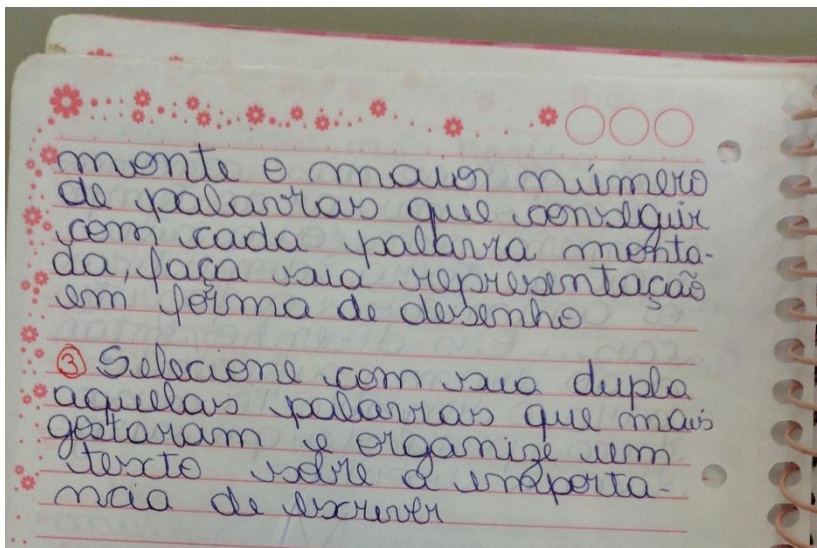 monte o maior número
de palavras que conseguir
com cada palavra monta-
da, faça sua representação
em forma de desenho
③ Selecione com sua dupla
aquelas palavras que mais
gostaram e organize um
texto sobre a importa-
ncia de escrever